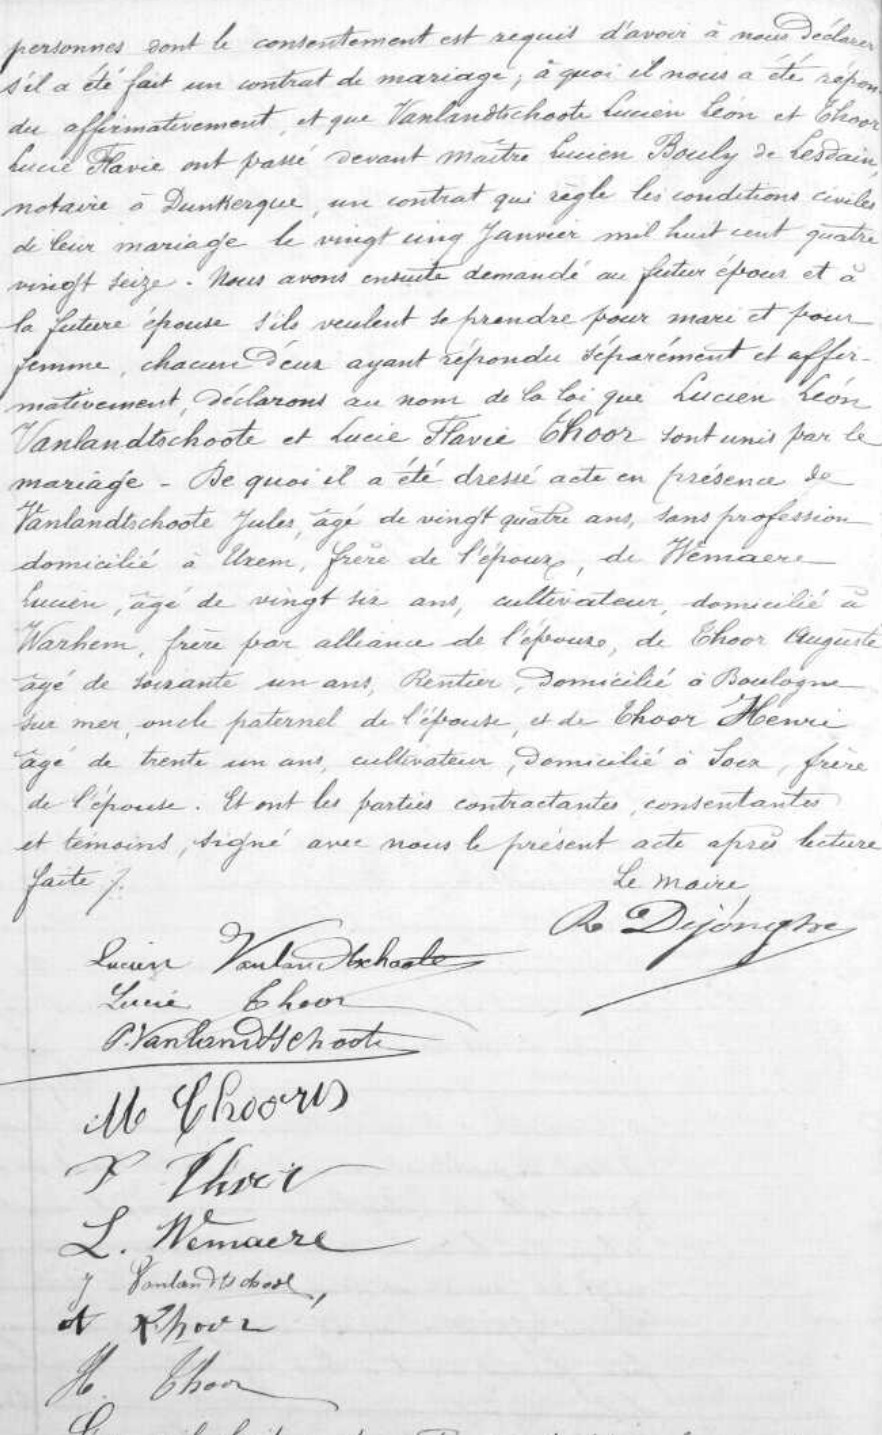 personnes dont le consentement est requis d'avoir à nous déclarer
s'il a été fait un contrat de mariage ; à quoi il nous a été répon-
du affirmativement, et que Vanlandtschoote Lucien Léon et Thoor
Lucie Flavie ont passé devant maître Lucien Bouly de Lesdain,
notaire à Dunkerque, un contrat qui règle les conditions civiles
de leur mariage le vingt cinq Janvier mil huit cent quatre
vingt seize. Nous avons ensuite demandé au futur époux et à
la future épouse s'ils veulent se prendre pour mari et pour
femme, chacun d'eux ayant répondu séparément et affir-
mativement, déclarons au nom de la loi que Lucien Léon
Vanlandtschoote et Lucie Flavie Thoor sont unis par le
mariage - De quoi il a été dressé acte en présence de
Vanlandtschoote Jules, âgé de vingt quatre ans, sans profession
domicilié à Uxem, frère de l'époux, de Wemaere
Lucien, âgé de vingt six ans, cultivateur, domicilié à
Warhem, frère par alliance de l'épouse, de Thoor Auguste
âgé de soixante un ans, Rentier, domicilié à Boulogne
sur mer, oncle paternel de l'épouse, et de Thoor Henri
âgé de trente un ans, cultivateur, domicilié à Socx, frère
de l'épouse. Et ont les parties contractantes, consentantes
et témoins, signé avec nous le présent acte après lecture
faite ./.
Le maire
R Dejonghe
Lucien Vanlandtschoote
Lucie Thoor
P. Vanlandtschoote
M Thooris
F Thoor
L. Wemaere
J Vanlandtschoote
A Thoor
H. Thoor